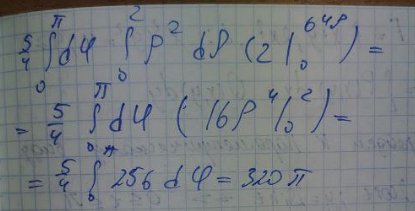 5/4 ∫₀^π dφ ∫₀² ρ² dρ (z|₀^64ρ) =
= 5/4 ∫₀^π dφ (16ρ⁴|₀²) =
= 5/4 ∫₀^π 256 dφ = 320π